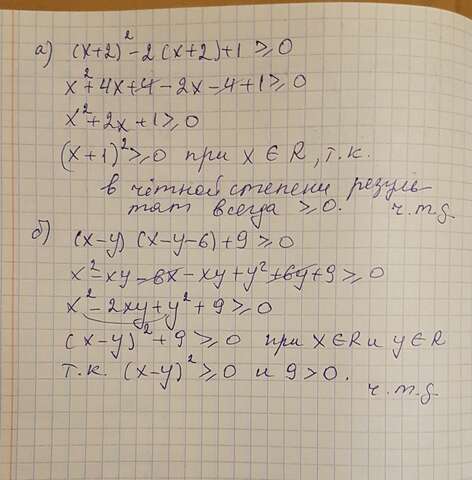 а) (x+2)²-2(x+2)+1⩾0
x²+4x+4-2x-4+1⩾0
x²+2x+1⩾0
(x+1)²⩾0 при x∈R, т.к.
в чётной степени резуль
тат всегда ⩾0. ч.т.д.
б) (x-y)(x-y-6)+9⩾0
x²-xy-6x-xy+y²+6y+9⩾0
x²-2xy+y²+9⩾0
(x-y)²+9⩾0 при x∈R и y∈R
т.к. (x-y)²⩾0 и 9>0.
ч.т.д.